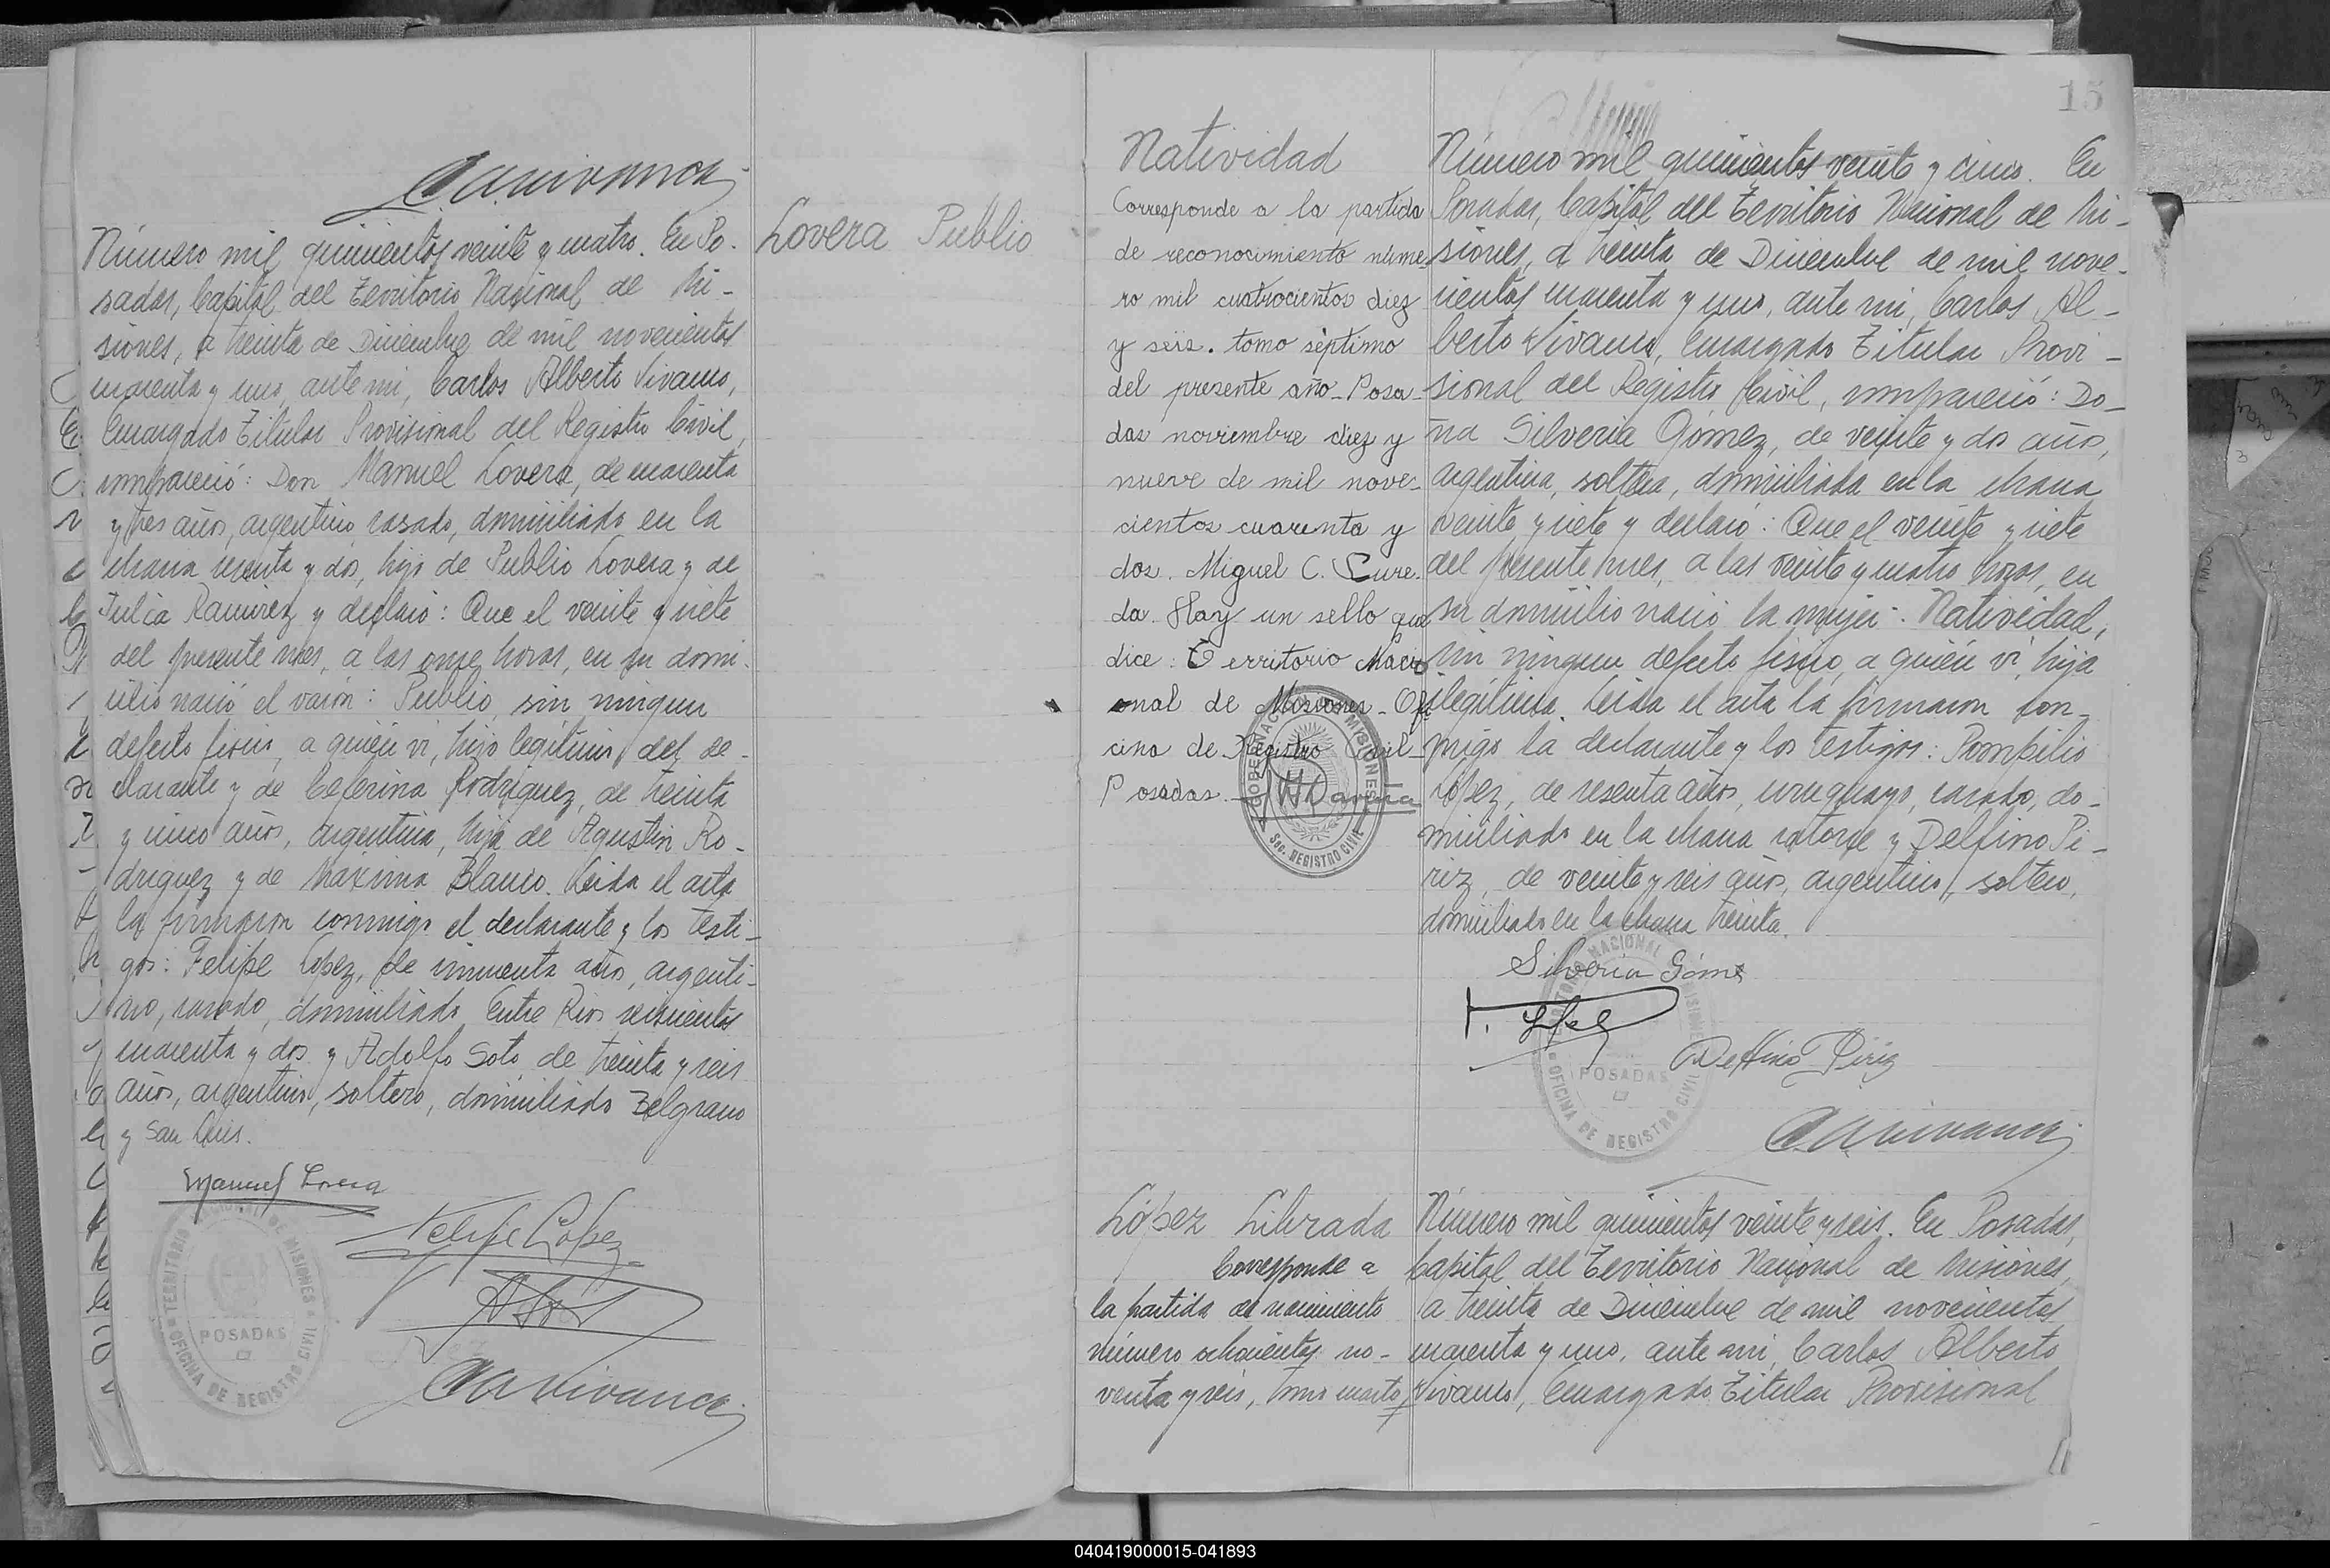 CAVivanco
Número mil quinientos veinte y cuatro. En Po-
sadas, Capital del Territorio Nacional de Mi-
siones, a treinta de Diciembre de mil novecientos
cuarenta y uno, ante mi, Carlos Alberto Vivanco,
Encargado Titular Provisional del Registro Civil,
compareció: Don Manuel Lovera, de cuarenta
y tres años, argentino, casado, domiciliado en la
chacra sesenta y dos, hijo de Publio Lovera y de
Julia Ramirez y declaró: Que el veinte y siete
del presente mes, a las once horas, en su domi-
cilio nació el varón: Publio, sin ningun
defecto fisico, a quién vi, hijo legítimo del de-
clarante y de Ceferina Rodriguez, de treinta
y cinco años, argentina, hija de Agustin Ro-
driguez y de Máxima Blanco. Leida el acta
la firmaron conmigo el declarante y los testi-
gos: Felipe López, de cincuenta años, argenti-
no, casado, domiciliado Entre Rios seiscientos
cuarenta y dos y Adolfo Soto de treinta y seis
años, argentino, soltero, domiciliado Belgrano
y San Luis.
Manuel Lovera
Felipe López
ASoto
CAVivanco
TERRITORIO NACIONAL DE MISIONES
POSADAS
OFICINA DE REGISTRO CIVIL
Lovera Publio
15
Natividad
Corresponde a la partida
de reconocimiento núme-
ro mil cuatrocientos diez
y seis. tomo séptimo
del presente año - Posa-
das noviembre diez y
nueve de mil nove-
cientos cuarenta y
dos. Miguel C.
da. Hay un sello que
dice: Territorio Naci
onal de Misiones - Ofi
cina de Registro Civil -
Posadas.
GOBERNACION DE MISIONES
Sec. REGISTRO CIVIL
Número mil quinientos veinte y cinco. En
Posadas, Capital del Territorio Nacional de Mi-
siones, a treinta de Diciembre de mil nove-
cientos cuarenta y uno, ante mi, Carlos Al-
berto Vivanco, Encargado Titular Provi-
sional del Registro Civil, compareció: Do-
ña Silveria Gómez, de veinte y dos años,
argentina, soltera, domiciliada en la chacra
veinte y siete y declaró: Que el veinte y siete
del presente mes, a las veinte y cuatro horas, en
su domicilio nació la mujer: Natividad,
sin ningun defecto fisico, a quién vi, hija
ilegítima. Leida el acta la firmaron con-
migo la declarante y los testigos: Pompilio
López, de sesenta años, uruguayo, casado, do-
miciliado en la chacra catorce y Delfino Pi-
riz, de veinte y seis años, argentino, soltero,
domiciliado en la chacra treinta.
Silveria Gómez
Delfino Piriz
CAVivanco
TERRITORIO NACIONAL DE MISIONES
POSADAS
OFICINA DE REGISTRO CIVIL
López Librada
Corresponde a
la partida de nacimiento
número ochocientos no-
venta y seis, tomo cuarto
Número mil quinientos veinte y seis. En Posadas,
Capital del Territorio Nacional de Misiones,
a treinta de Diciembre de mil novecientos
cuarenta y uno, ante mi, Carlos Alberto
Vivanco, Encargado Titular Provisional
040419000015-041893